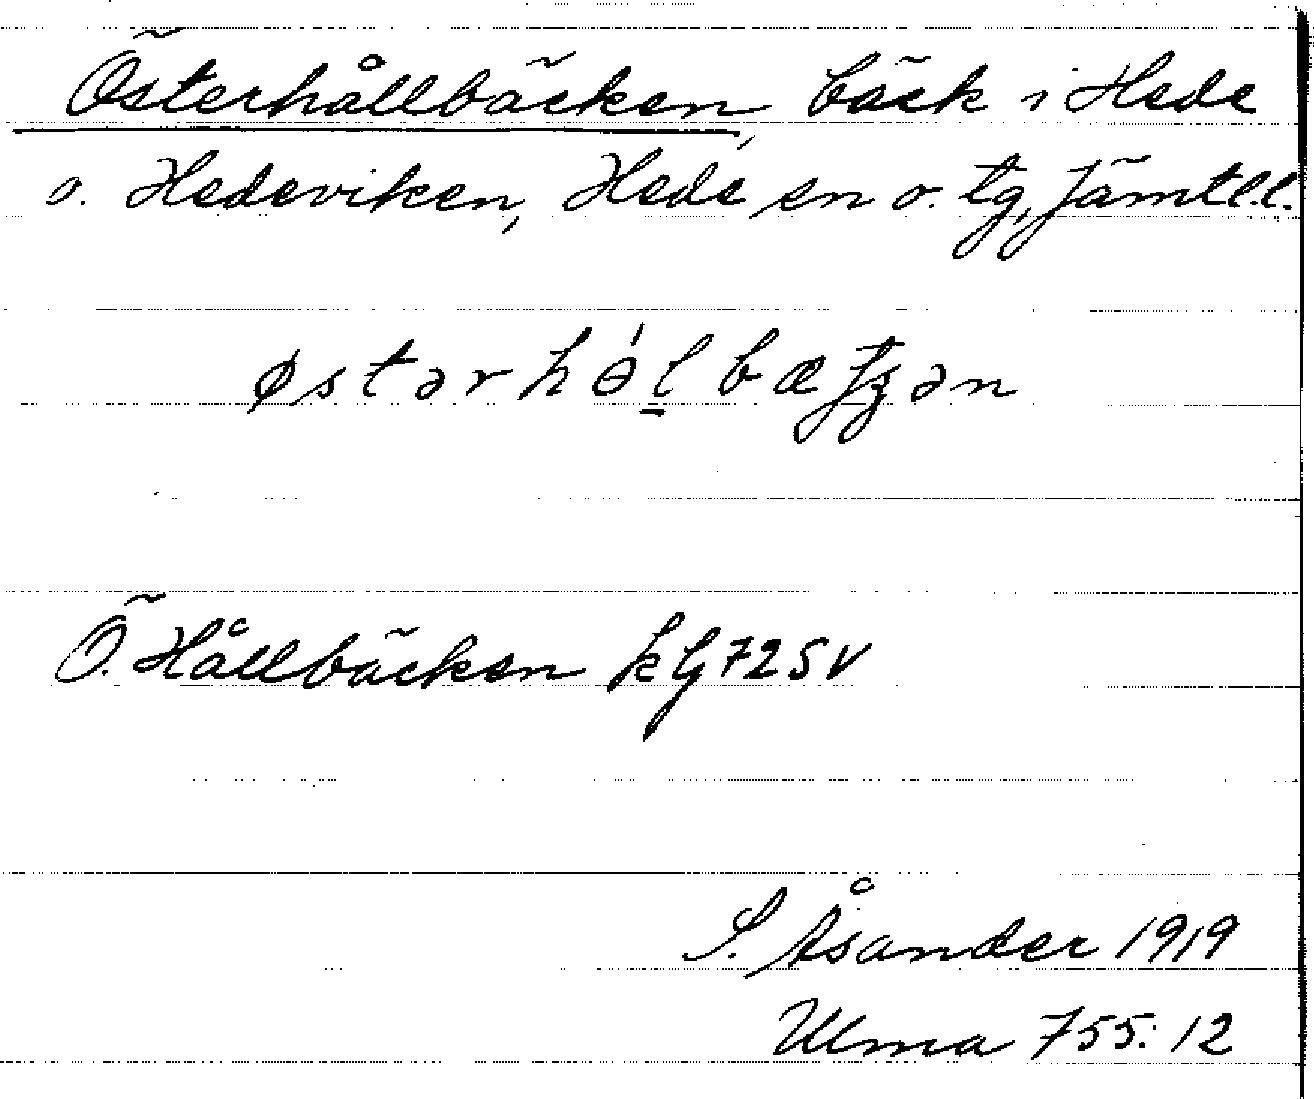 Österhållbäcken, bäck i Hede
o. Hedeviken, Hede sn o. tg, Jämtl.l.
østərhɵ́l̲bæʈʂən
Ö. Hållbäcken kG 72 SV
S. Åsander 1919
Ulma 755:12